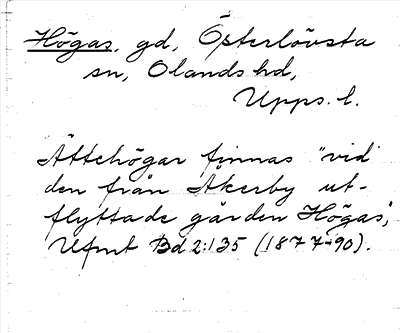 Högas, gd, Österlövsta
sn, Olands hd,
Upps. l.
Ättehögar finnas "vid
den från Åkerby ut-
flyttade gården Högas",
Ufmt Bd 2:135 (1877-90).